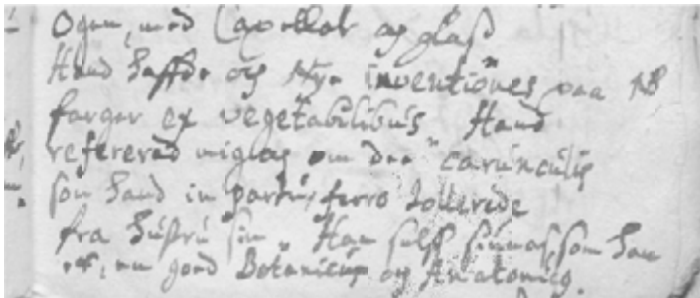 Ogen, med Capeller og glass
Hand haffde og Nye inventiones paa NB
farger ex vegetabilibus Hand
refererad miglag om dee carunculis
som hand in partu, ferro tollerede
fra hustru sin Han self sin som han
en goed Botanicus og Anatomicq